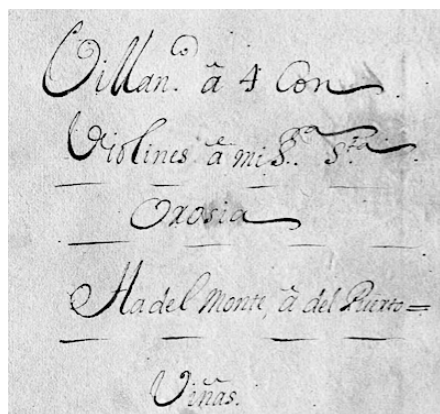 Villan.co â 4 Con
Violines â mi S.ra S.ta
Orosia
Ha del Monte, â del Puerto=
Viñas.